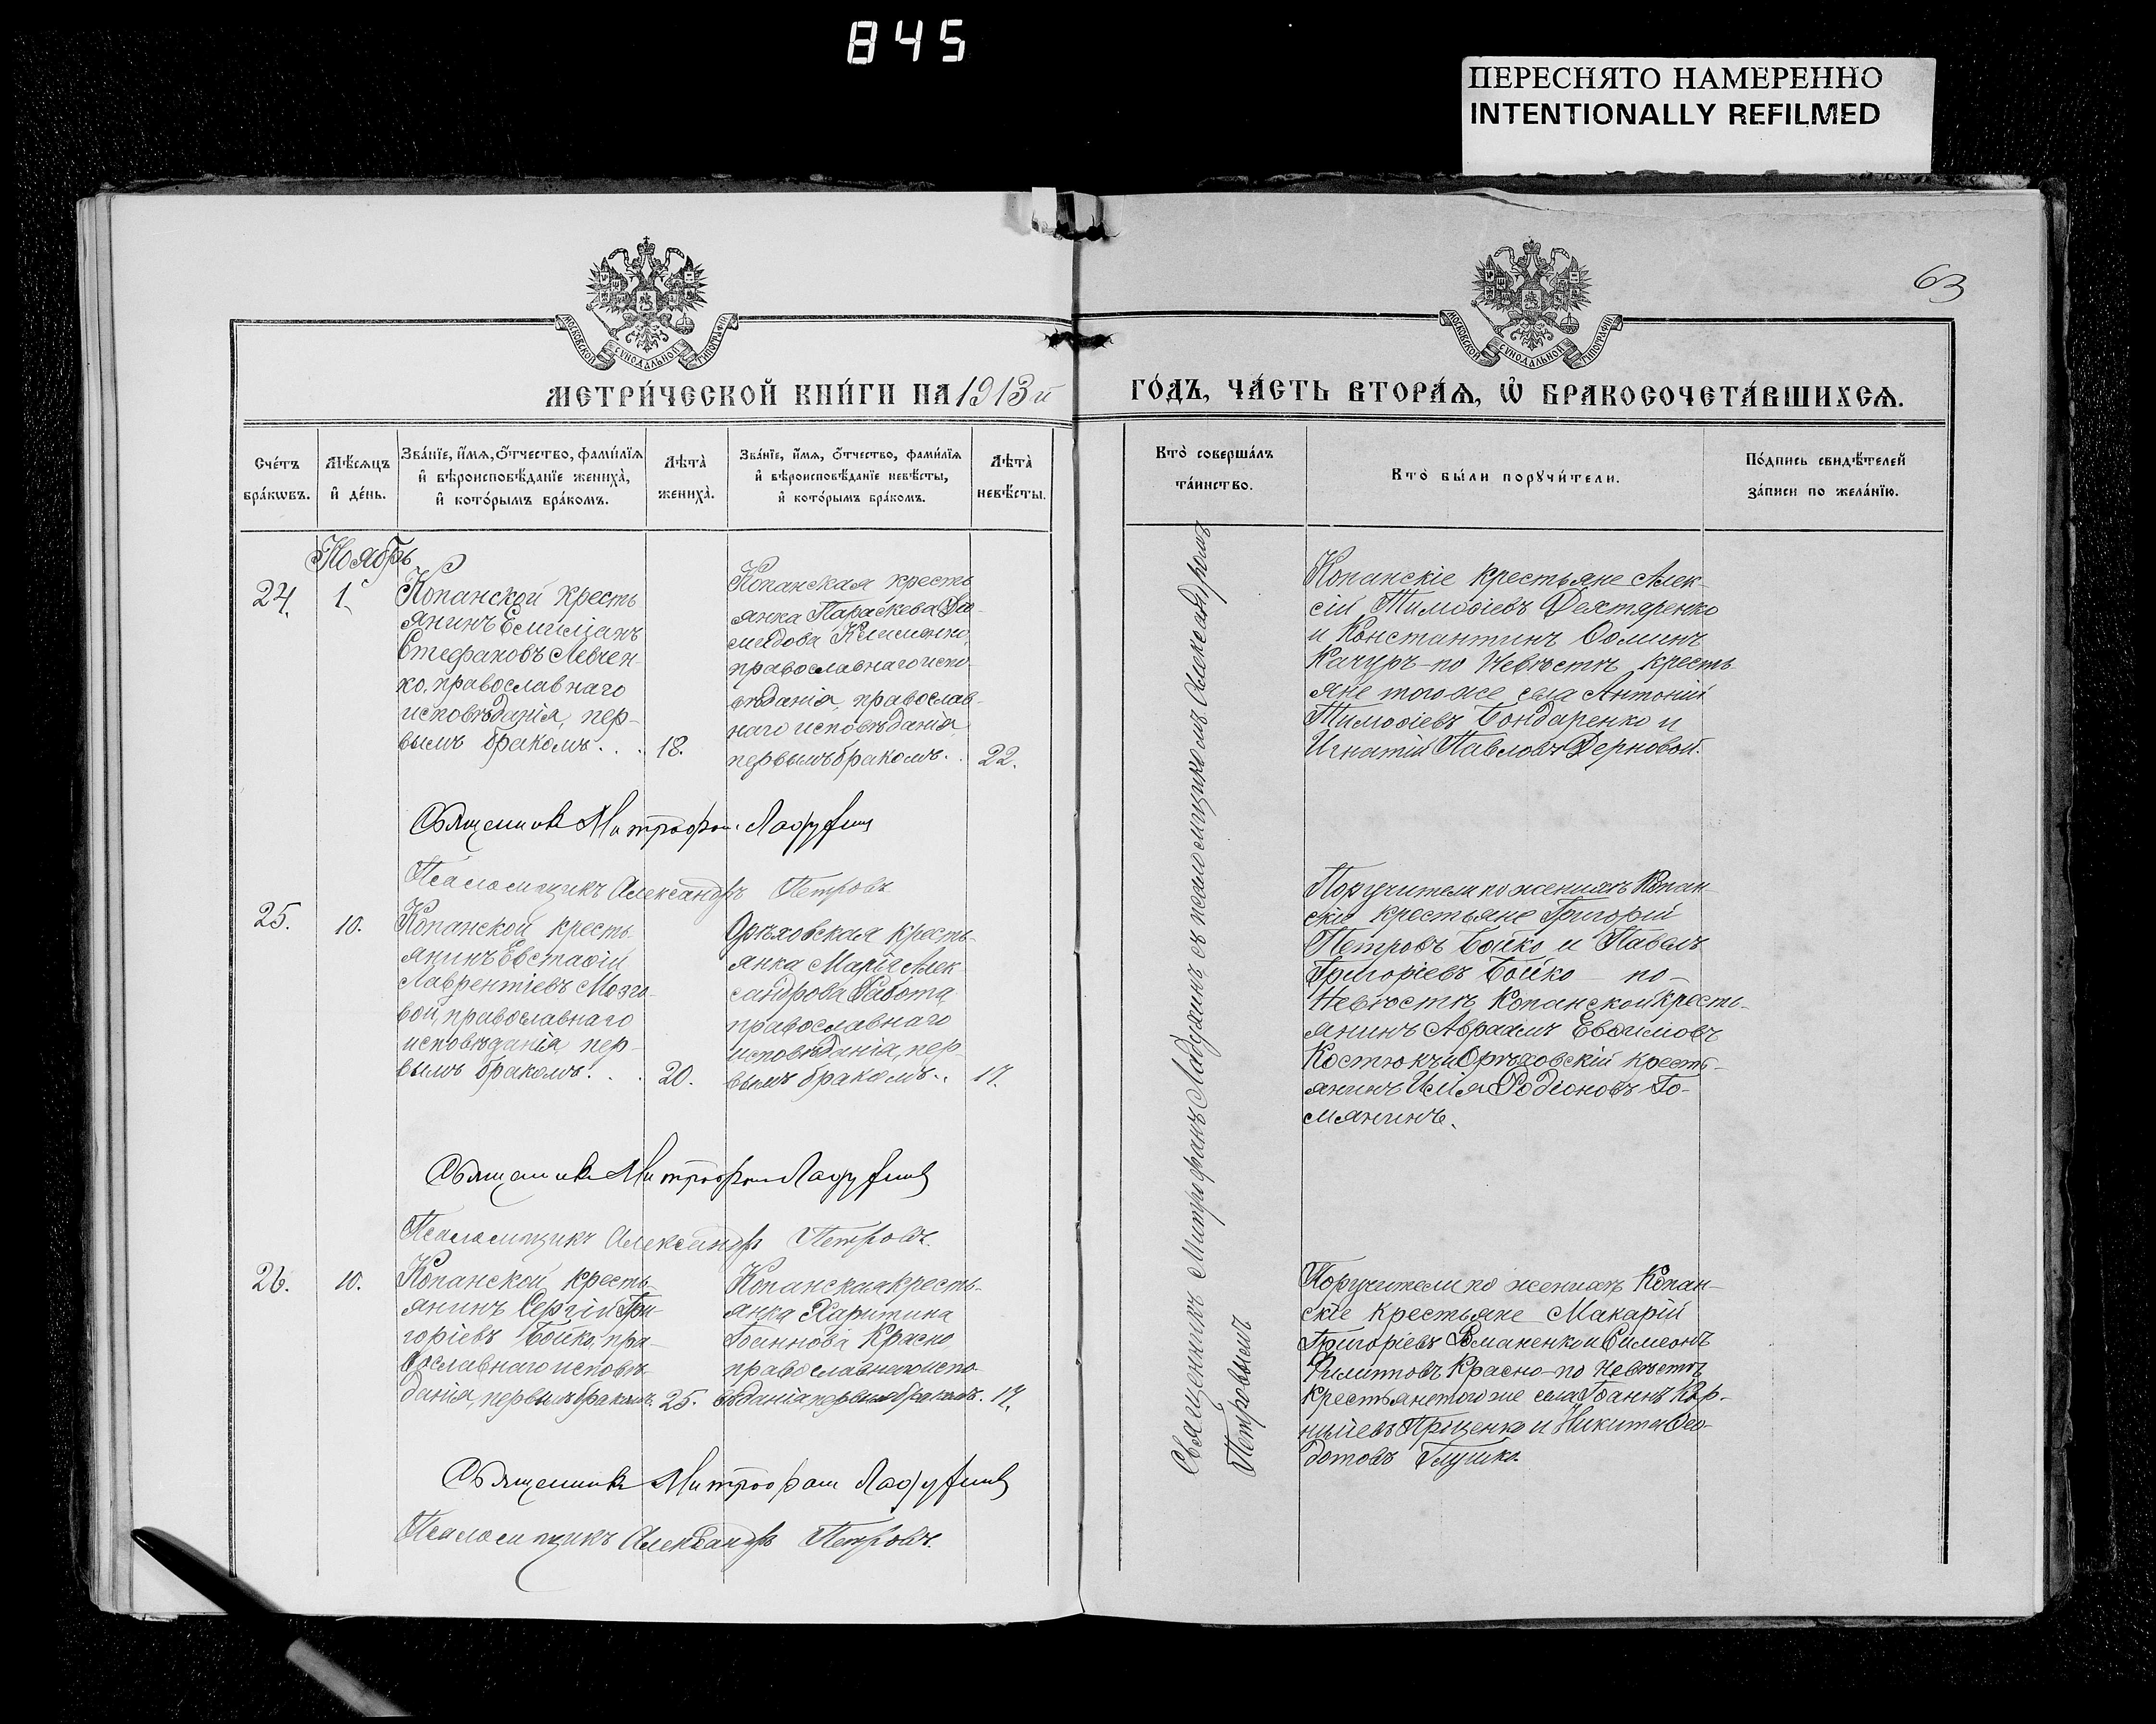 845
ПЕРЕСНЯТО НАМЕРЕННО
INTENTIONALLY REFILMED
63
МОСКОВСКОЙ СѴНОДАЛЬНОЙ ТИПОГРАФІИ
МОСКОВСКОЙ СѴНОДАЛЬНОЙ ТИПОГРАФІИ
МЕТРИ́ЧЕСКОЙ КНИ́ГИ НА 1913й
ГО́ДЪ, ЧА́СТЬ ВТОРА́Ѧ, Ѽ БРАКОСОЧЕТА́ВШИХСѦ.
Сче́тъ
бра́кѡвъ.
Мѣ́сяцъ
и҆ де́нь.
Зва́нїе, и҆́мѧ, ѻ҆́тчество, фами́лїѧ
и҆ вѣроисповѣ́данїе жениха̀,
и҆ кото́рымъ бра́комъ.
Лѣта̀
жениха̀.
Зва́нїе, и҆́мѧ, ѻ҆́тчество, фами́лїѧ
и҆ вѣроисповѣ́данїе невѣ́сты,
и҆ кото́рымъ бра́комъ.
Лѣта̀
невѣ́сты.
Кто̀ соверша́лъ
та́инство.
Кто̀ бы́ли порꙋчи́тели.
По́дпись свидѣ́телей
за́писи по жела́нїю.
Ноябрь
24.
1
Копанской кресть
янинъ Емиліанъ
Стефановъ Левчен-
ко, православнаго
исповѣданія, пер-
вымъ бракомъ. . .
18.
Копанская кресть
янка Параскева
православнаго испо
вѣданія, православ-
наго исповѣданія
первымъ бракомъ. .
22.
Копанскіе крестьяне Алек-
сій Тимоѳіевъ Дехтяренко
и Константинъ Ѳоминъ
Качуръ - по Невѣстѣ кресть
яне того-же села Антоній
Тимоѳіевъ Бондаренко и
Игнатій Павловъ Дерновой.
Священникъ Митрофанъ
Псаломщикъ Александръ Петровъ
25.
10.
Копанской кресть
янинъ Евстаѳій
Лаврентіевъ Мозго-
вой, православнаго
исповѣданія, пер-
вымъ бракомъ. . .
20.
Орѣховская кресть-
янка Марія Алек
сандрова Работа
православнаго
исповѣданія, пер-
вымъ бракомъ. .
17.
Поручители по женихѣ Копан-
скіе крестьяне Григорій
Петровъ Бойко и Павелъ
Григоріевъ Бойко - по-
Невѣстѣ Копанской кресть-
янинъ Авраамъ Евѳимовъ
Костюкъ и Орѣховскій кресть-
янинъ Илія Родіоновъ Го-
мянинъ.
Священникъ Митрофанъ
Псаломщикъ Александръ Петровъ.
26.
10.
Копанской кресть-
янинъ Сергій Гри-
горіевъ Бойко, пра-
вославнаго исповѣ-
данія, первымъ бракомъ.
25.
Копанская кресть-
янка Харитина
Іоаннова Красно
православнаго испо-
вѣданія, первымъ бракомъ.
17.
Поручители по женихѣ Копан-
скіе крестьяне Макарій
Григоріевъ и Симеонъ
Филипповъ Красно - по Невѣстѣ
крестьяне того же села Іоаннъ Кор-
ниліевъ Проценко и Никита Ѳео-
дотовъ Глушко.
Священникъ Митрофанъ
Псаломщикъ Александръ Петровъ.
Священникъ Митрофанъ съ псаломщикомъ Александромъ
Петровымъ